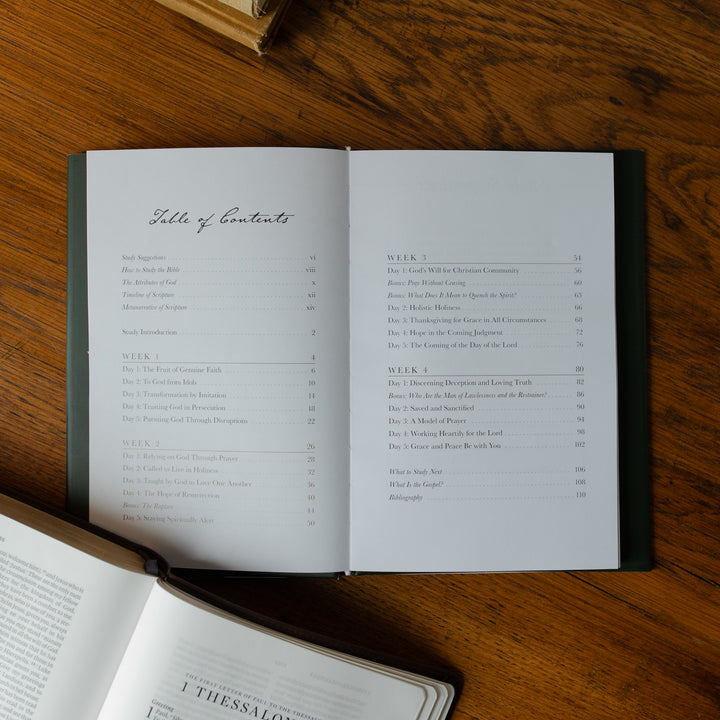 Table of Contents
Study Suggestions vi
How to Study the Bible viii
The Attributes of God x
Timeline of Scripture xii
Metanarrative of Scripture xiv
Study Introduction 2
WEEK 1 4
Day 1: The Fruit of Genuine Faith 6
Day 2: To God from Idols 10
Day 3: Transformation by Imitation 14
Day 4: Trusting God in Persecution 18
Day 5: Pursuing God Through Disruptions 22
WEEK 2 26
Day 1: Relying on God Through Prayer 28
Day 2: Called to Live in Holiness 32
Day 3: Taught by God to Love One Another 36
Day 4: The Hope of Resurrection 40
Bonus: The Rapture 44
Day 5: Staying Spiritually Alert 50
WEEK 3 54
Day 1: God's Will for Christian Community 56
Bonus: Pray Without Ceasing 60
Bonus: What Does It Mean to Quench the Spirit? 63
Day 2: Holistic Holiness 66
Day 3: Thanksgiving for Grace in All Circumstances 68
Day 4: Hope in the Coming Judgment 72
Day 5: The Coming of the Day of the Lord 76
WEEK 4 80
Day 1: Discerning Deception and Loving Truth 82
Bonus: Who Are the Man of Lawlessness and the Restrainer? 86
Day 2: Saved and Sanctified 90
Day 3: A Model of Prayer 94
Day 4: Working Heartily for the Lord 98
Day 5: Grace and Peace Be with You 102
What to Study Next 106
What Is the Gospel? 108
Bibliography 110
THE FIRST LETTER OF PAUL TO THE THESSALO
1 THESSALON
Greeting
1 Paul,